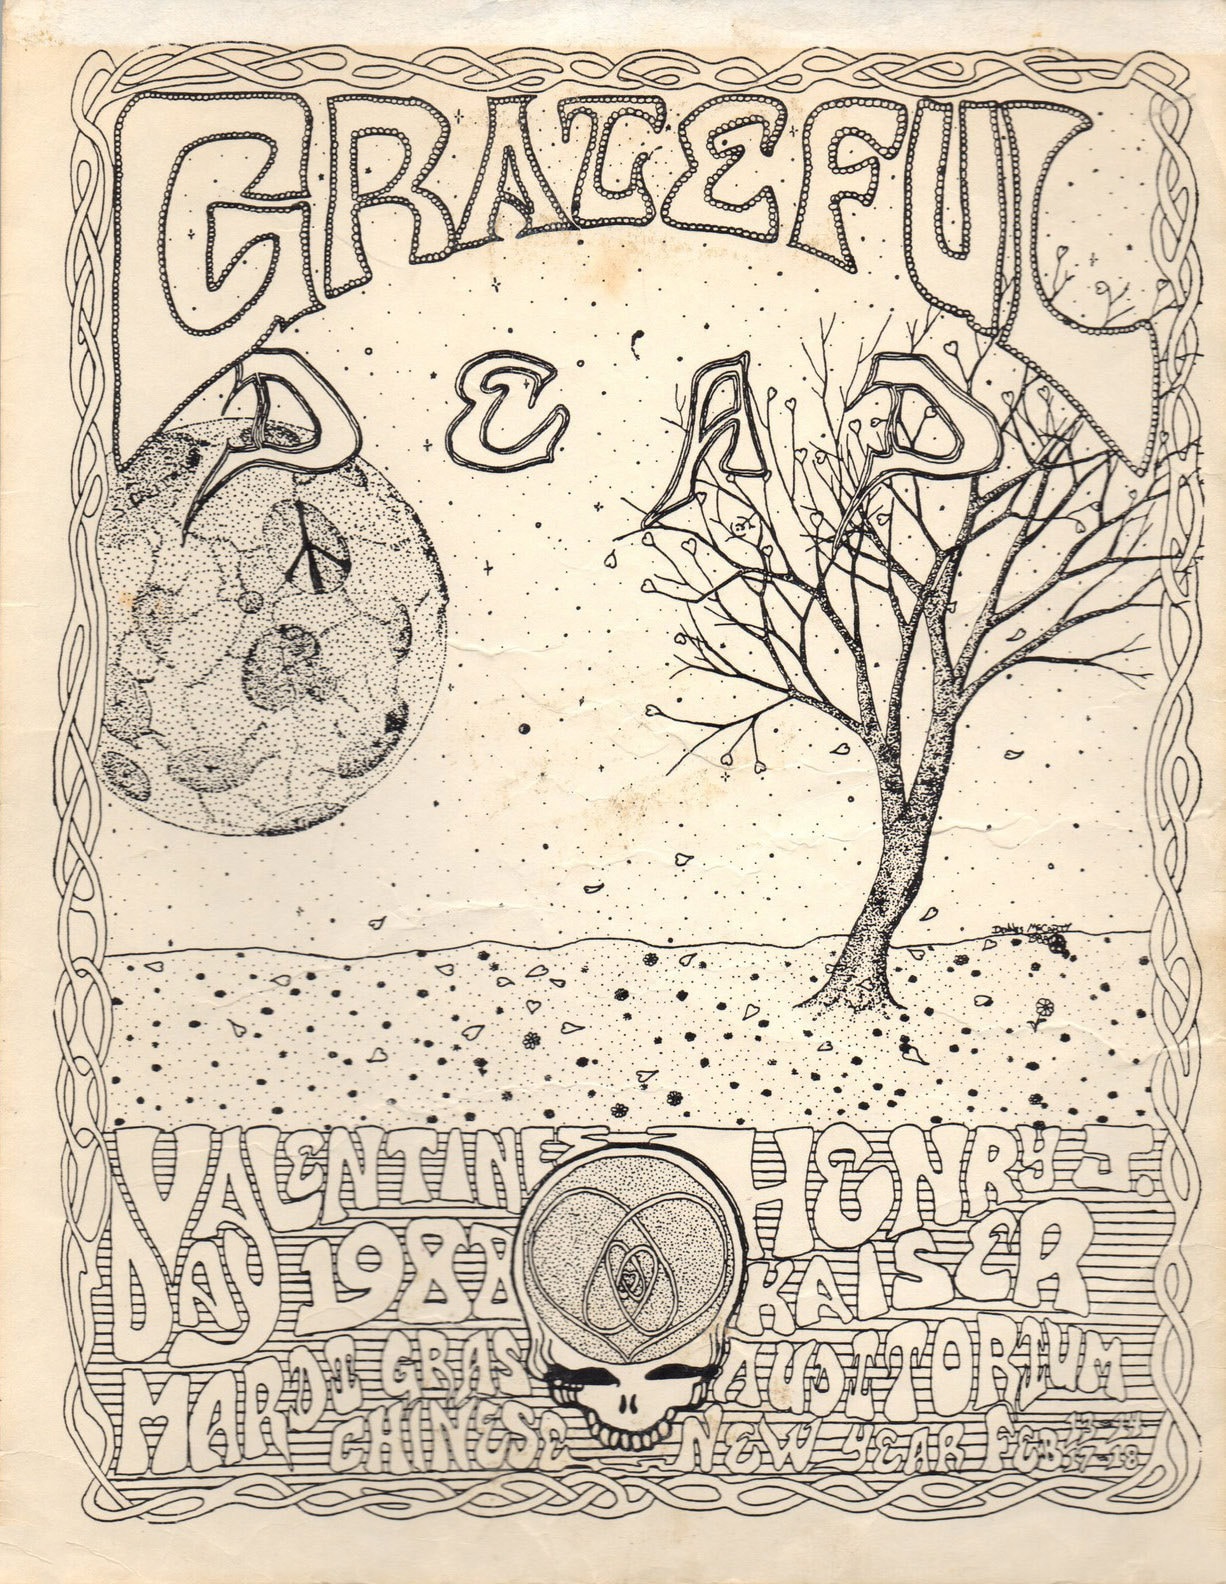 GRATEFUL
DEAD
VALENTINE
DAY 1988
MARDI GRAS
CHINESE
HENRY J.
KAISER
AUDITORIUM
NEW YEAR FEB 13-14
17-18